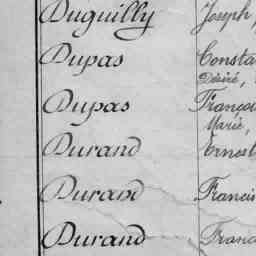 Duguilly Joseph,
Dupas Consta
Désiré,
Dupas Françoi
Marie,
Durand Ernest
Durand Francis
Durand Franc